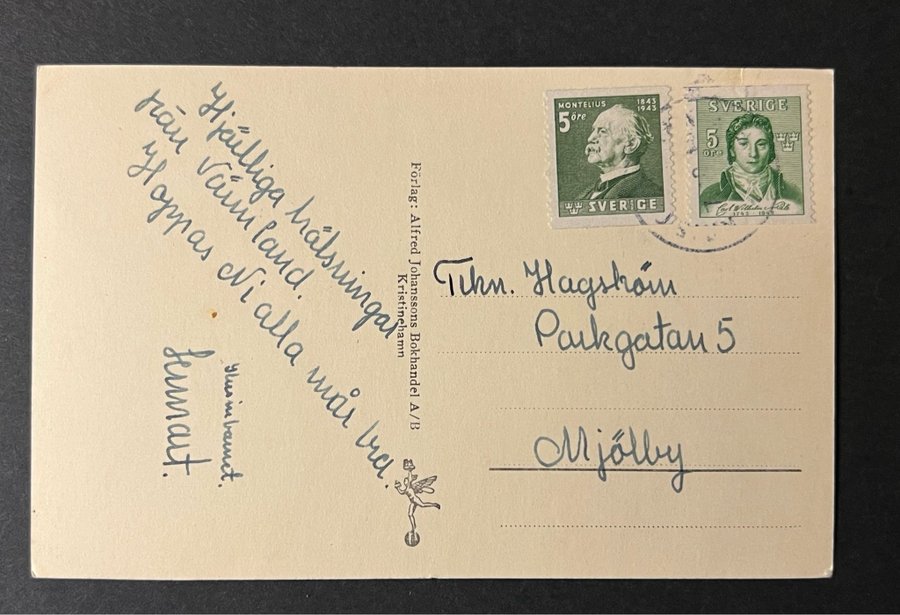 Hjärtliga hälsningar
från Värmland.
Hoppas Ni alla mår bra.
Kusinbarnet.
Lennart.
Förlag: Alfred Johanssons Bokhandel A/B
Kristinehamn
MONTELIUS 1843
1943
5 öre
SVERIGE
SVERIGE
5
öre
Carl Wilhelm
Tekn. Hagström
Parkgatan 5
Mjölby